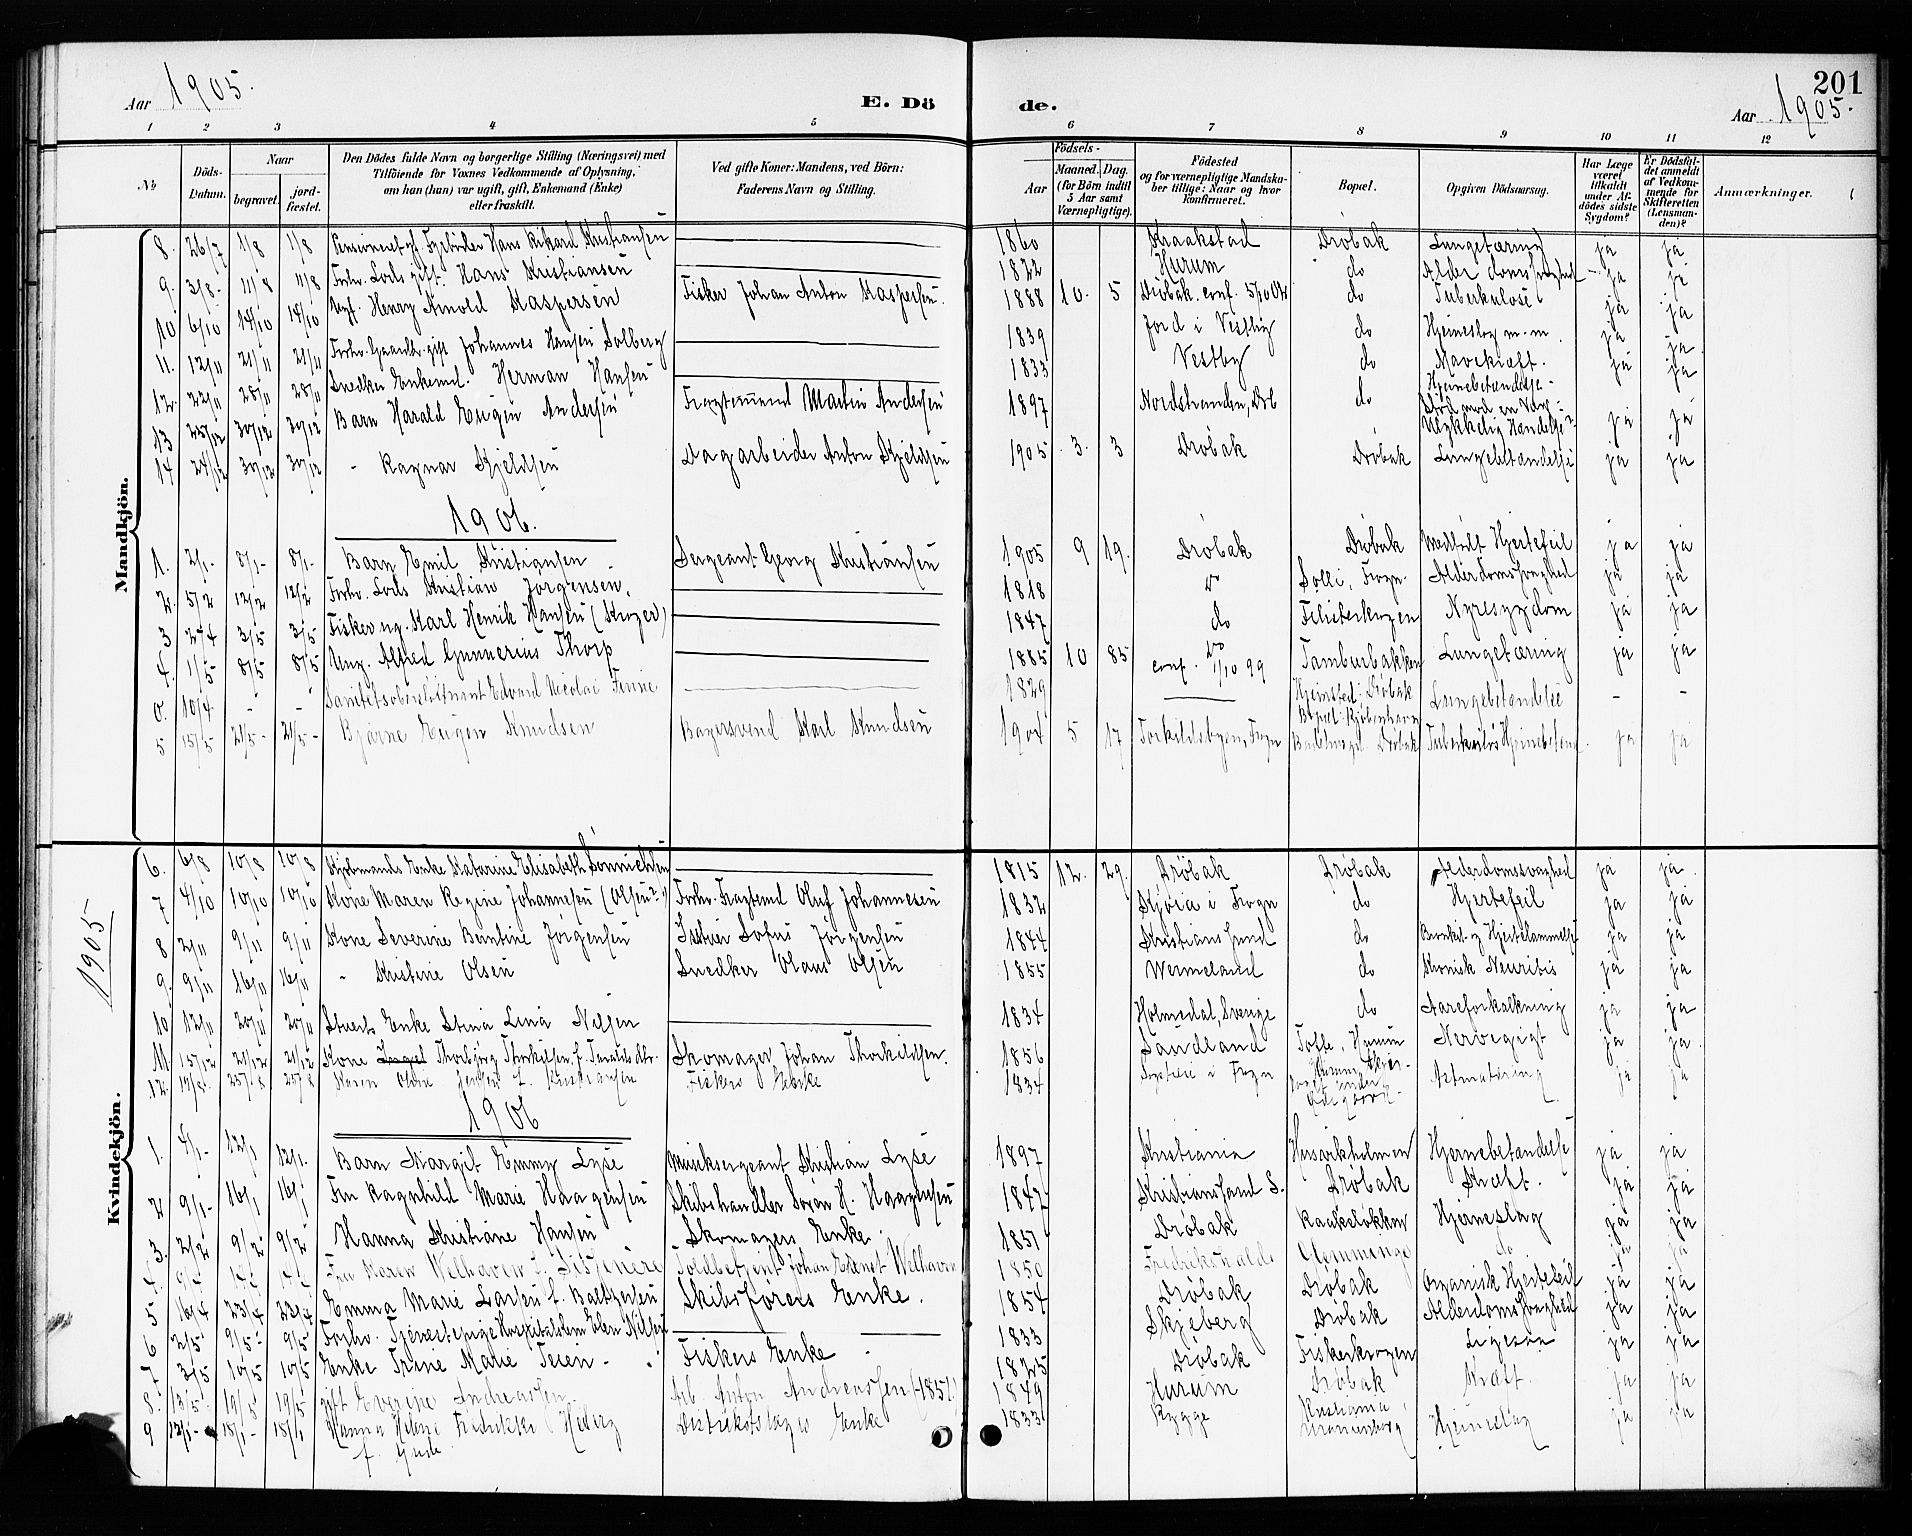 Aar 1905.
E. Dö
de.
201
Aar 1905.
1 2 3 4 5 6 7 8 9 10 11 12
No
Döds-Datum.
Naar
begravet.
jord-fæstet.
Den Dödes fulde Navn og borgerlige Stilling (Næringsvei) med Tilföiende for Voxnes Vedkommende af Oplysning, om han (hun) var ugift, gift, Enkemand (Enke) eller fraskilt.
Ved gifte Koner: Mandens, ved Börn: Faderens Navn og Stilling.
Födsels-
Aar
Maaned. Dag.
(for Börn indtil 5 Aar samt Værnepligtige).
Födested og for værnepligtige Mandskaber tillige: Naar og hvor konfirmeret.
Bopæl.
Opgiven Dödsaarsag.
Har Læge været tilkaldt under Afdödes sidste Sygdom?
Er Dödsfaldet anmeldt af Vedkommende for Skifteretten (Lensmanden)?
Anmærkninger.
Mandkjön.
8. 26/7 1/8 1/8 Pensioneret gf. Fyrbøder Hans Rikard Kristiansen 1860 Kraakstad Drøbak Lungetæring ja ja
9. 3/8 11/8 11/8 Forhv. Lods gift. Hans Kristiansen 1822 Hurum do Alderdomssvaghed ja ja
10 6/10 14/10 14/10 Ugf. Henry Arnold Kaspersen Fisker Johan Anton Kaspersen. 1888 10. 5 Drøbak. conf. 5/10 02 do Tuberkulose ja ja
11. 12/11 21/11 21/11 Forhv. Gaardbr. gift Johannes Hansen Solberg 1839 Jord i Vestby do Hjerneslag m.m. ja ja
12. 22/11 28/11 28/11 Snedker Enkemd. Herman Hansen 1833 Vestby do Mavekræft. ja ja
13 25/12 30/12 30/12 Barn Harald Eugen Andersen Fragtemand Martin Andersen 1897 Nordstranden, Drb do Hjernebetændelse - Stød mod en Væg - Ulykkelig Hændelse? ja ja
14 24/12 30/12 30/12 - Ragnar Kjeldsen Dagarbeider Anton Kjeldsen 1905 3. 3 Drøbak Drøbak Lungebetændelse ja ja
1906.
1. 2/1 8/1 8/1 Barn Emil Kristiansen Sergeant Georg Kristiansen 1905 9 19. Drøbak Drøbak Medfødt Hjertefeil ja ja
2. 5/2 12/2 12/2 Forhv. Lods Kristian Jørgensen. 1818 do Solli, Frogn. Alderdomssvaghed ja ja
3 27/4 3/5 3/5 Fisker ug. Karl Henrik Hansen (Kroger) 1847 do Fiskerkrogen Nyresygdom ja ja
4. 1/5 8/5 8/5 Ung. Alfred Gunnerius Thorp 1885 10 85 do conf. 1/10 99 Tamburbakken Lungetæring ja ja
0. 10/4 - - Sanitetsoberstløitnant Edvard Nicolai Fenne 1829 Hjemsted: Drøbak Bopæl: Kjøbenhavn Lungebetændelse - -
5 15/5 21/5 21/5 Bjarne Eugen Knudsen Bagersvend Karl Knudsen 1904 5 17 Torkildsbyen, Frogn Drøbak Tuberkuløs Hjernebetænd. ja ja
1905
Kvindekjön.
6. 6/8 10/8 10/8 Kjøbmands Enke Katarine Elisabeth Sønnichsen 1815 12. 29. Drøbak Drøbak Alderdomssvaghed ja ja.
7 4/10 10/10 10/10 Kone Maren Regine Johannesen (Olsen?) Forhv. Fragtemd Oluf Johannesen 1832 Skjøia i Frogn do Hjertefeil ja ja
8 2/11 9/11 9/11 Kone Severine Berntine Jørgensen Isbrier Sofus Jørgensen 1844 Kristianssund do Bronkit- og Hjertelammelse ja ja
9. 9/11 16/11 16/11 - Kristine Olsen Snedker Olaus Olsen 1855 Wermeland do Kronisk Neuritis ja ja
10 12/11 20/11 20/11 Stuerts Enke Stina Lena Nilsen 1834 Holmedal, Sverige do Aareforkalkning ja ja
11. 15/12 21/12 21/12 Kone Thorbjørg Thorkilsen f. Taralds dtr. Skomager Johan Thorkildsen. 1856 Sandland Tofte, Hurum Nervegigt ja ja.
12. Maren Oline Jensen f. Kristiansen Fiskers Enke 1834 i Frogn Astmatæring ja ja
1906
1. 4/1 12/1 12/1 Barn Margit Emmy Lyse Musiksergeant Kristian Lyse 1897 Kristiania Husvikholmen Hjernebetændelse ja ja
2 9/1 16/1 16/1 Fru Ragnhild Marie Haagensen Skibshandler Søren H. Haagensen 1847 Kristianssand S. Drøbak Kræft. ja ja
3. 2/2 9/2 9/2 Hanna Kristiane Hansen Skomagers Enke. 1851 Drøbak Raakeløkken Hjerneslag ja ja
4. 9/4 14/4 14/4 Fru Maren Welhaven f. Toldbetjent Johan Ernst Welhaven 1850 Fredrikshald Glemminge do ja ja
5 16/4 23/4 23/4 Emma Marie Larsen f. Baltzersen Skibsførers Enke. 1854 Drøbak Drøbak Organisk Hjertefeil ja ja
6 2/5 9/5 9/5 Forhv. Tjenestepige Hospitalslem Elen Nilsen 1833 Skjeberg Drøbak Alderdomssvaghed ja ja
7 3/5 10/5 10/5 Enke Trine Marie Teien Fiskers Enke 1825 Drøbak Fiskerkrogen Ligesaa ja ja
8. 13/5 19/5 19/5 gift Everine Andreassen Arb. Anton Andreassen (1857) 1849 Hurum Drøbak Kræft. ja ja
9 12/1 18/1 18/1 Hanna Helene Fredrikke f. Gude Distriktslæges Enke 1833 Rygge Kristiania, Uranienborg Hjerneslag ja ja